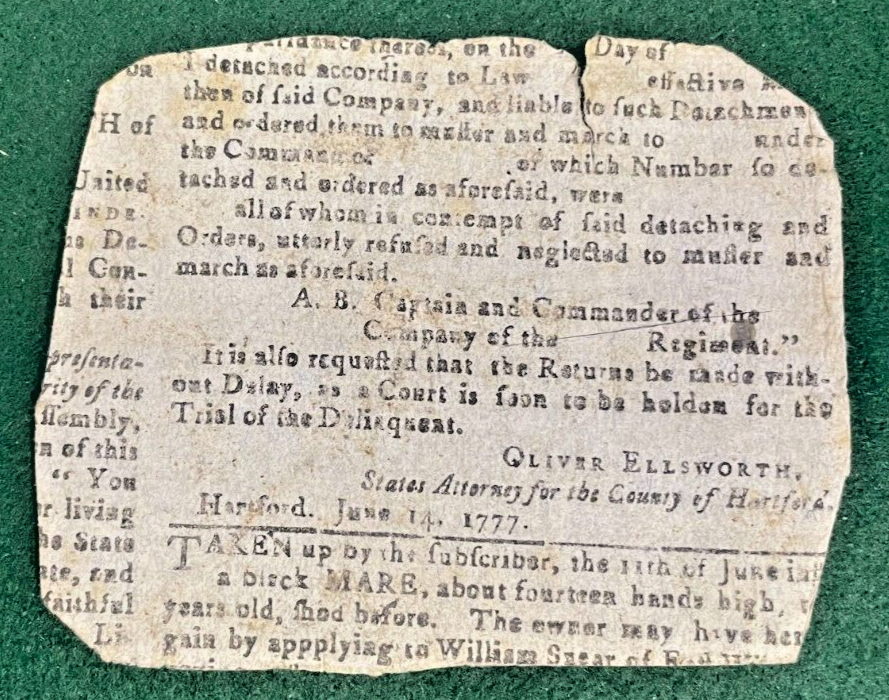 on
H of
United
INDE-
De-
Con-
their
presenta-
rity of the
ssembly,
n of this
“ You
living
State
and
faithful
thereof, on the Day of
I detached according to Law effective
then of said Company, and liable to such Detachmen
and ordered them to muster and march to under
the Command of of which Number so de-
tached and ordered as aforesaid, were
all of whom in contempt of said detaching and
Orders, utterly refused and neglected to muster and
march as aforesaid.
A. B. Captain and Commander of the
Company of the Regiment.”
It is also requested that the Returns be made with-
out Delay, as a Court is soon to be holden for the
Trial of the Delinquent.
OLIVER ELLSWORTH,
States Attorney for the County of Hartford.
Hartford. June 14, 1777.
TAKEN up by the subscriber, the 11th of June
a black MARE, about fourteen hands high,
years old, shod before. The owner may have her
gain by appplying to William of